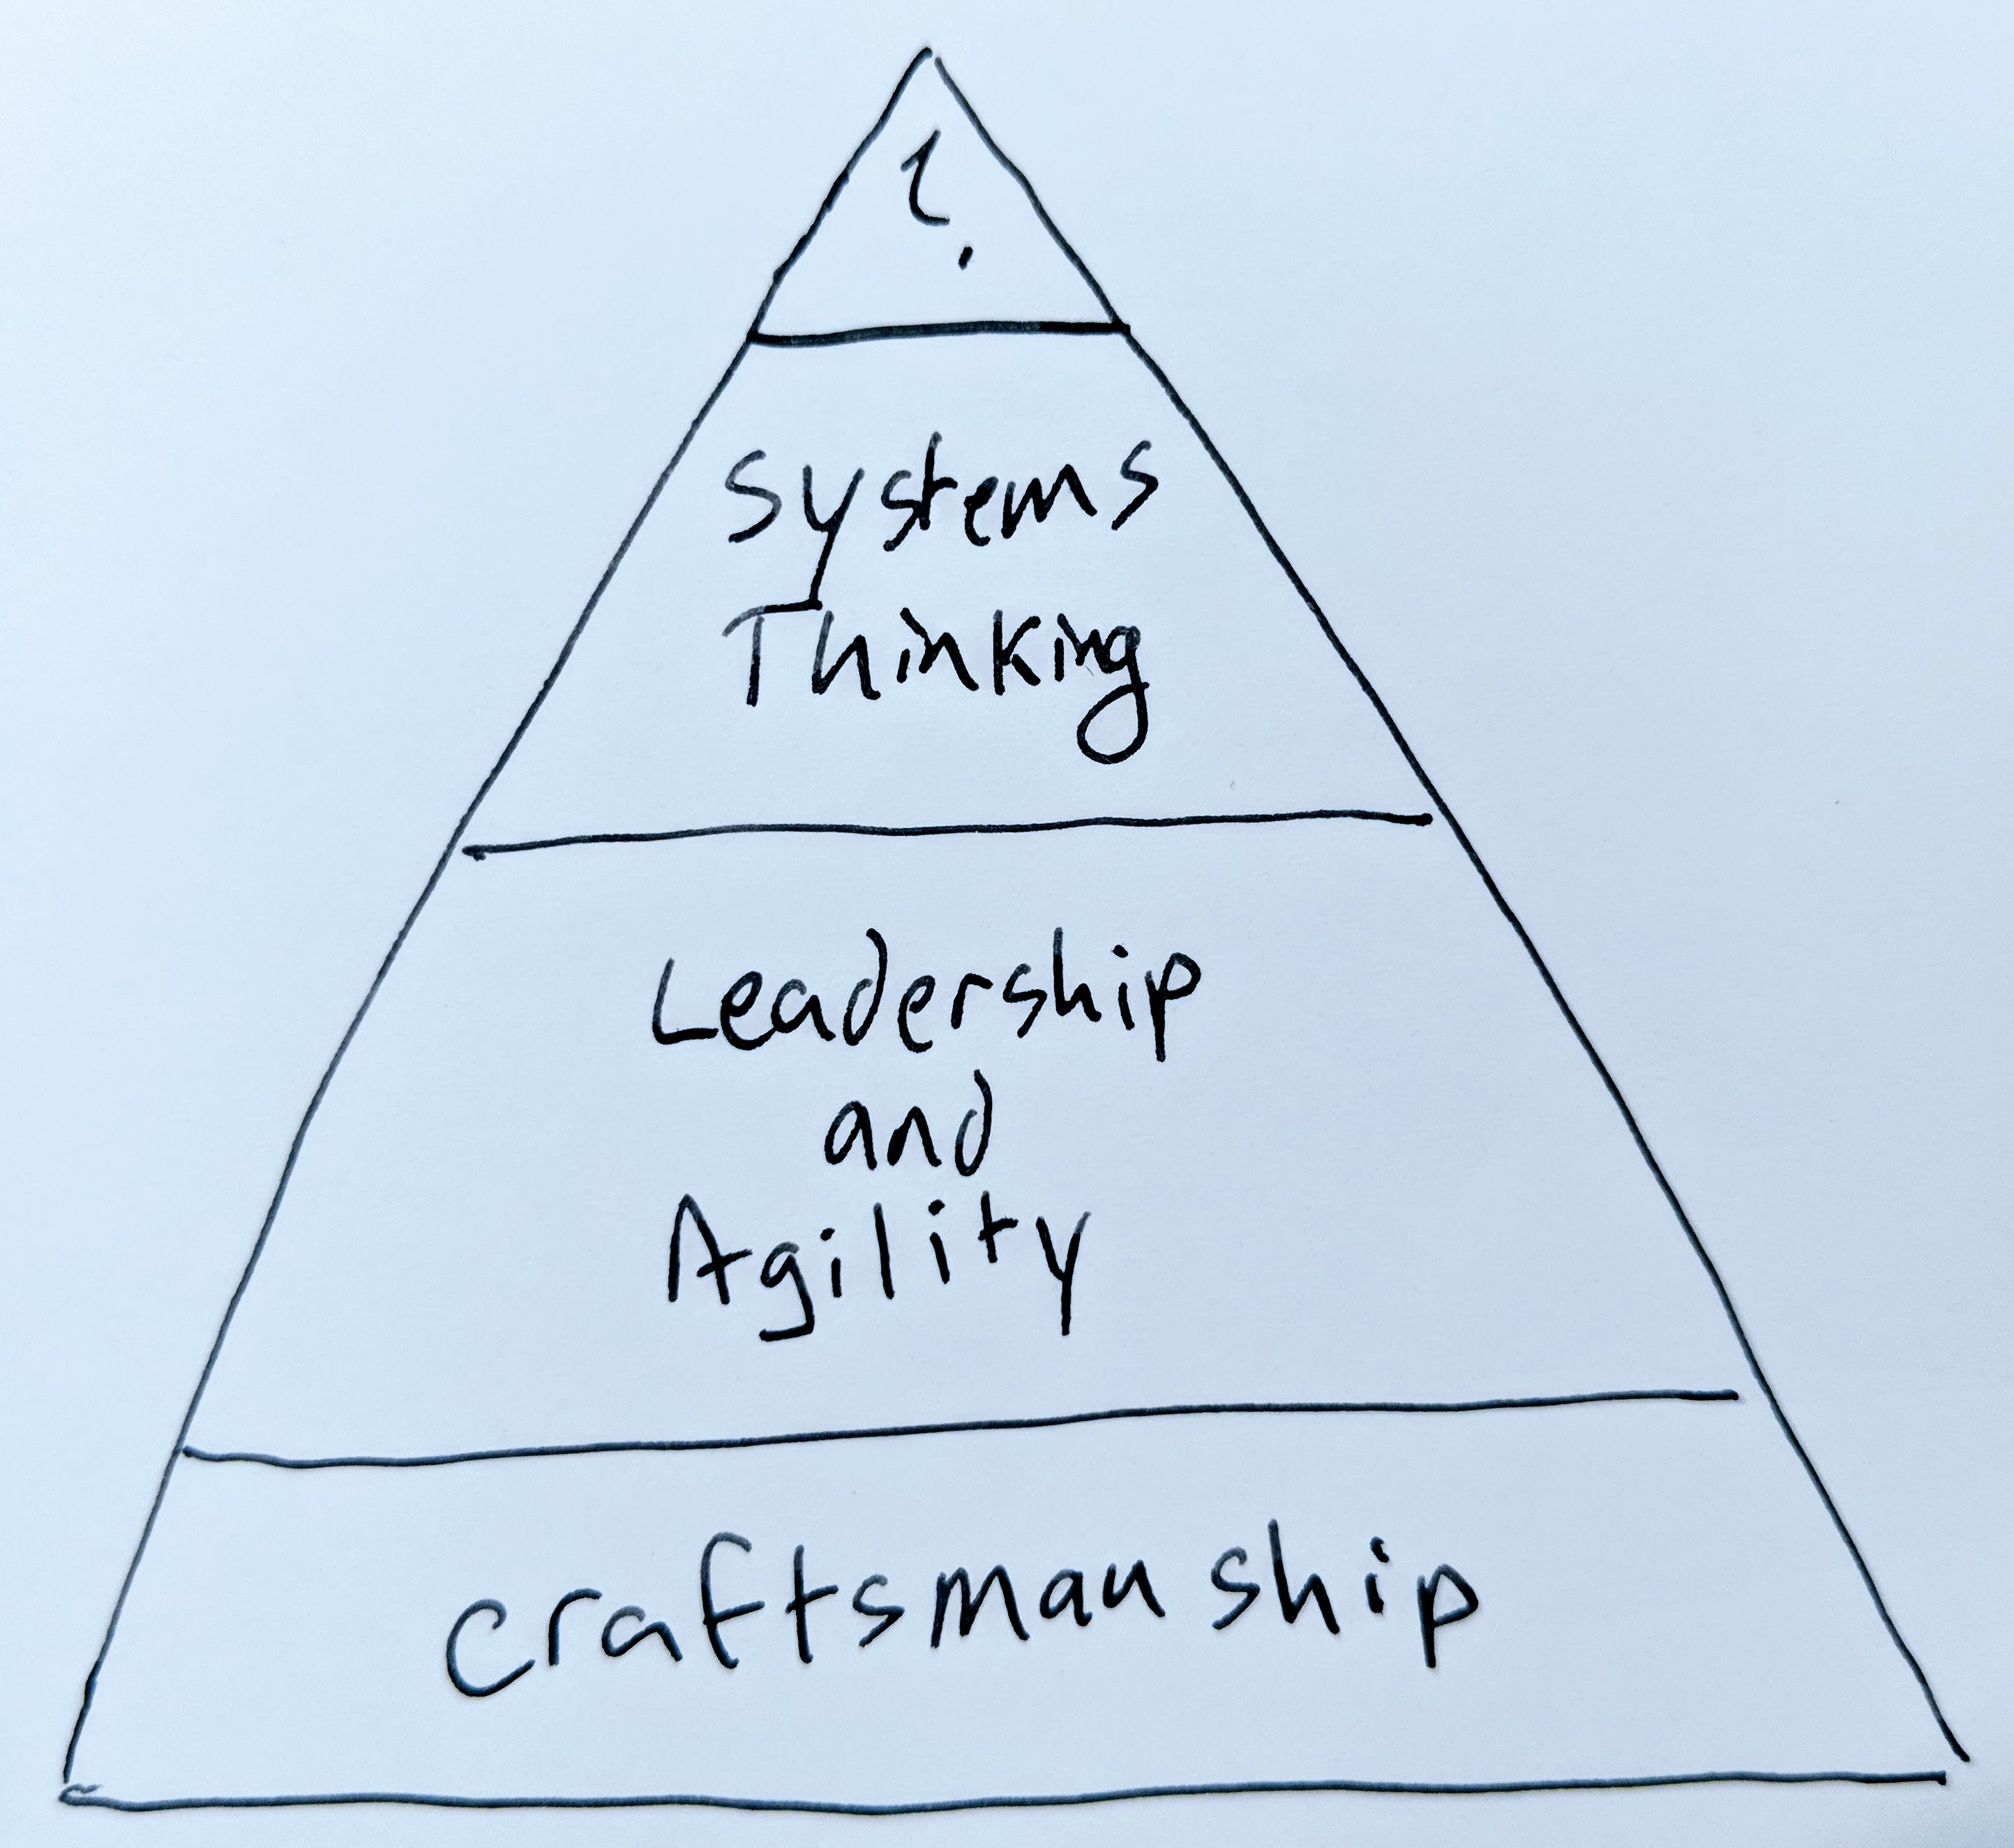 ?
Systems
Thinking
Leadership
and
Agility
Craftsmanship